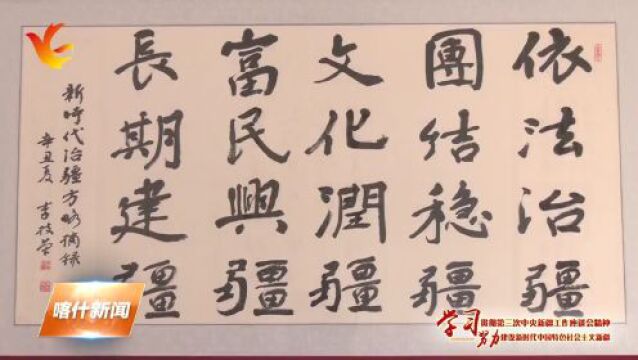 依法治疆
團结稳疆
文化潤疆
富民興疆
長期建疆
新時代治疆方略摘録
辛丑夏 李枝
喀什新闻
学习 贯彻第三次中央新疆工作座谈会精神
努力 建设新时代中国特色社会主义新疆